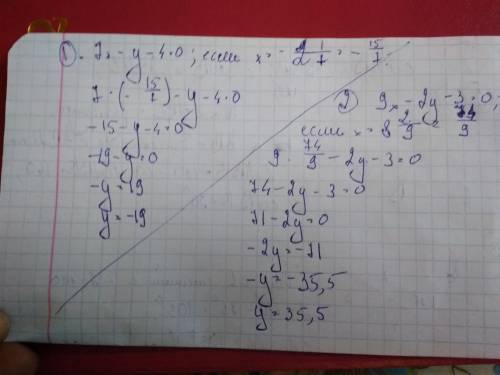 ① . 7x - y - 4 = 0 ; если x = - 2 1/7 = - 15/7 .
7 · (- 15/7) - y - 4 = 0
-15 - y - 4 = 0
-19 - y = 0
-y = 19
y = -19
② 9x - 2y - 3 = 0 ;
если x = 8 2/9 = 74/9
9 · 74/9 - 2y - 3 = 0
74 - 2y - 3 = 0
71 - 2y = 0
-2y = -71
-y = -35,5
y = 35,5